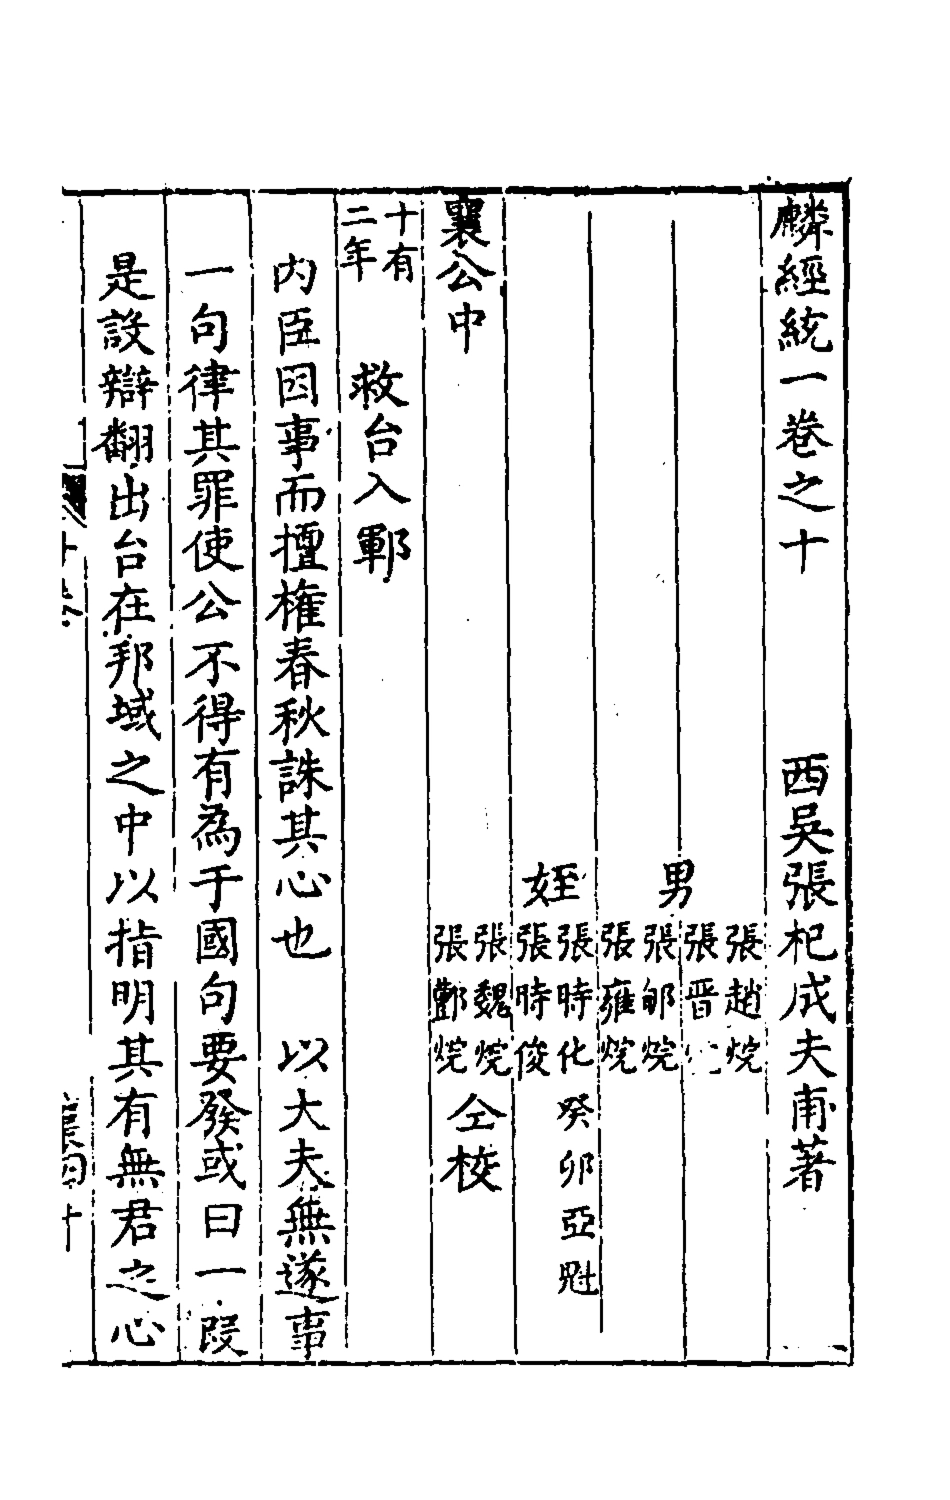 麟經統一卷之十　　西吳張杞成夫甫著
張趙烷
男　張晋
張郇烷
張雍烷
姪　張時化癸卯亞魁
張時俊
張魏烷
張酆烷　仝校
襄公中
十有二年　救台入鄆
內臣因事而擅權春秋誅其心也　以大夫無遂事
一句律其罪使公不得有為于國句要發或曰一段
是設辯翻出台在邦域之中以指明其有無君之心